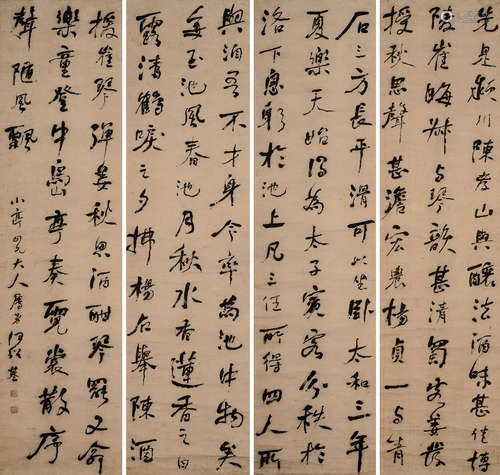 先是潁川陳孝山與釀法酒味甚佳博
陵崔晦叔与琴韻甚清蜀客姜發
授秋思聲甚澹宏農楊貞一与青
石三方長平滑可以坐卧太和三年
夏樂天始得為太子賓客分秩於
洛下息躬於池上凡三任所得四人所
與洎吾不才身今率為池物矣
每至池風春池月秋水香蓮香之旦
露清鶴唳之夕拂楊石舉陳酒
援崔琴彈姜秋思酒酣琴罷又命
樂童登中島亭奏霓裳散序
聲隨風飄
大人屬弟何紹基